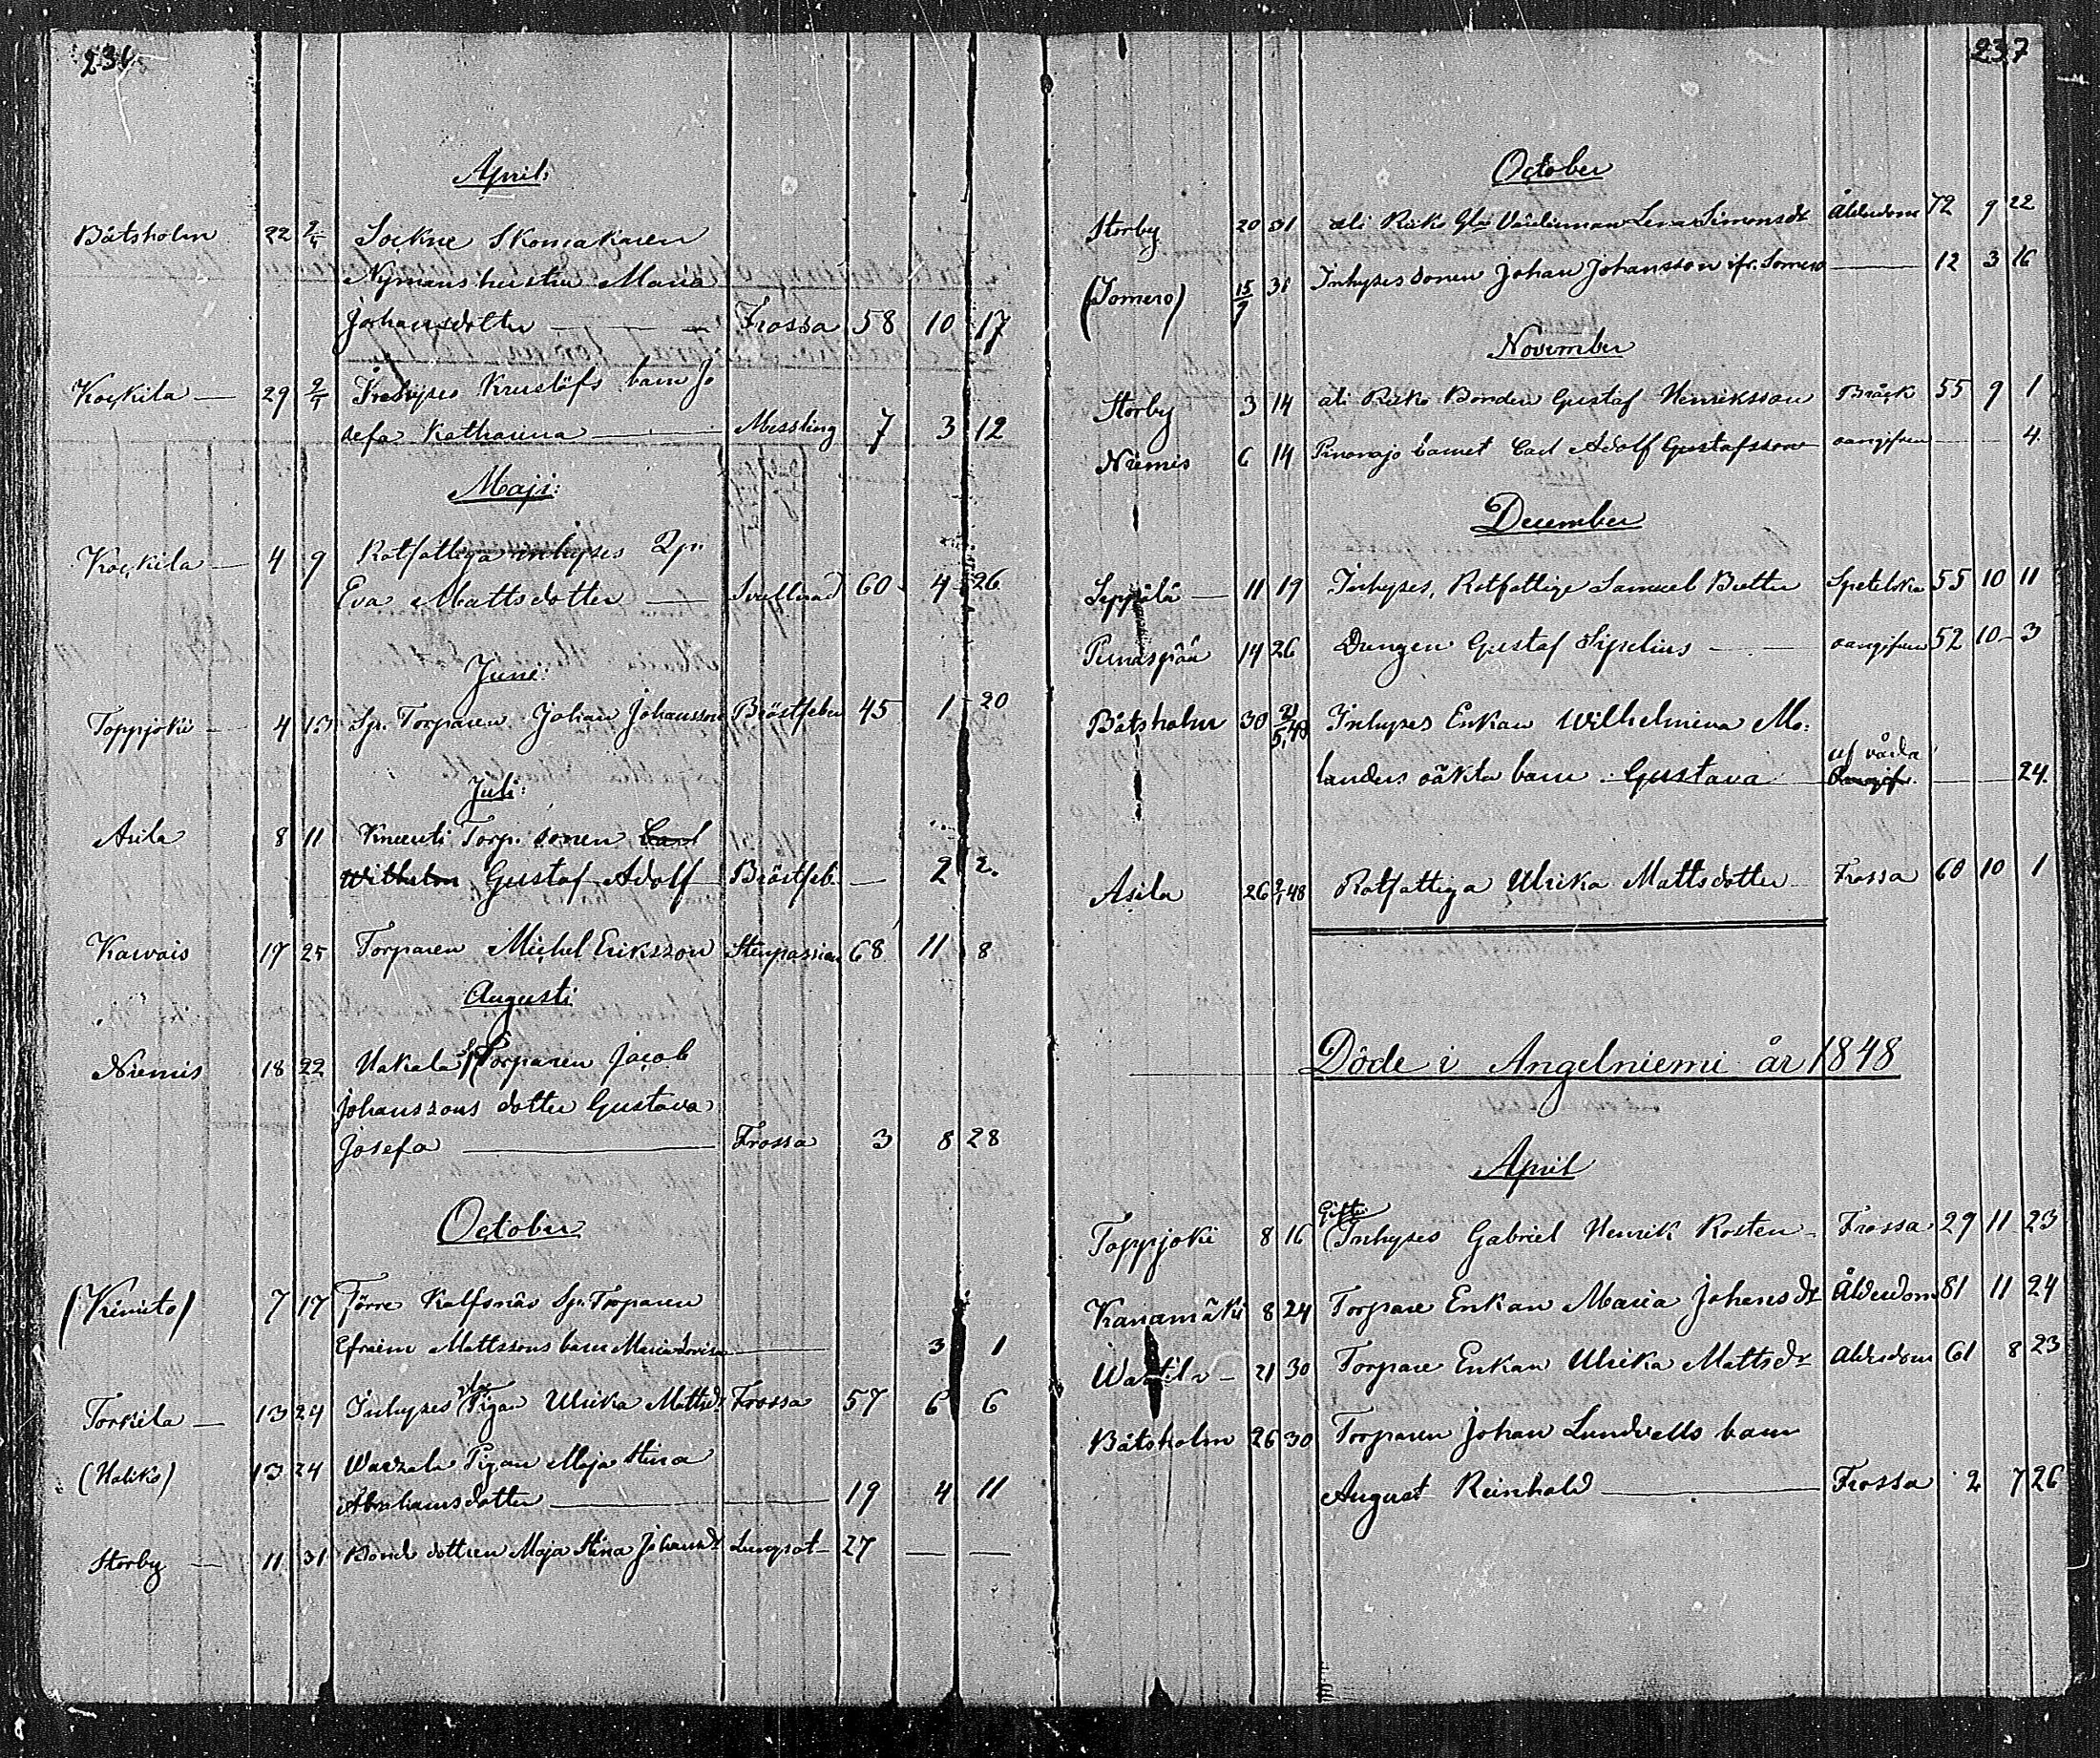 236
April:
Båtsholm 22 2/5 Sockne Skomakaren
Nymans hustru Maria
Johansdotter — Frossa 58 10 17
Kockila — 29 2/5 Inhyses Kustöfs barn Jo
sefa Katharina — Messling 7 3 12
Maji:
Kockila — 4 9 Rotfattiga inhyses Qp:
Eva Mattsdotter — Svullnad 60 4 26
Juni:
Toppjoki — 4 13 Sp. Torparen Johan Johansson Bröstfeber 45 1 20
Juli:
Asila 8 11 Torp. sonen Carl
Wilhelm Gustaf Adolf Bröstfeb. — 2 2.
Karvais 17 25 Torparen Michel Eriksson Stenpassion 68 11 8
Augusti
Niemis 18 22 Uskala Sp Torparen Jacob
Johanssons dotter Gustava
Josefa — Frossa 3 8 28
October
(Kimito) 7 17 Förre Kalfsnäs Sp. Torparen
Efraim Mattssons barn Maria Lovisa — 3 1
Torkila — 13 24 Inhyses Pigan Ulrika Mattsdr Frossa 57 6 6
(Haliko) 13 24 Pigan Maja Stina
Abrahamsdotter — 19 4 11
Storby — 11 31 Bonde dottren Maja Stina Johansdr Lungsot — 27 — —
237
October
Storby 20 31 ali Rekko Gla Värdinnan Lena Simonsdr Ålderdom 72 9 22
(Somero) 15/9 31 Inhyses sonen Johan Johansson ifr. Somero — 12 3 16
November
Storby 3 14 ali Rekko Bonden Gustaf Henriksson Bråck 55 9 1
Niemis 6 14 Pinonojo barnet Carl Adolf Gustafsson oangifven — — 4.
December
Seppälä — 11 19 Inhyses, Rotfattige Samuel Spetelska 55 10 11
Punaspää 14 26 Drengen Gustaf Sipelius — oangifven 52 10 3
Båtsholm 30 5,48 Inhyses Enkan Wilhelmina Mo:
landers oäkta barn Gustava af våda — 24.
Asila 26 48 Rotfattiga Ulrika Mattsdotter Frossa 60 10 1
Döde i Angelniemi år 1848
April
Toppjoki 8 16 Gifte Inhyses Gabriel Henrik Rosten — Frossa 29 11 23
Kanamäki 8 24 Torpare Enkan Maria Johansdr Ålderdom 81 11 24
— 21 30 Torpare Enkan Ulrika Mattsdr Ålderdom 61 8 23
Båtsholm 26 30 Torparen Johan Lundvalls barn
August Reinhold — Frossa 2 7 26